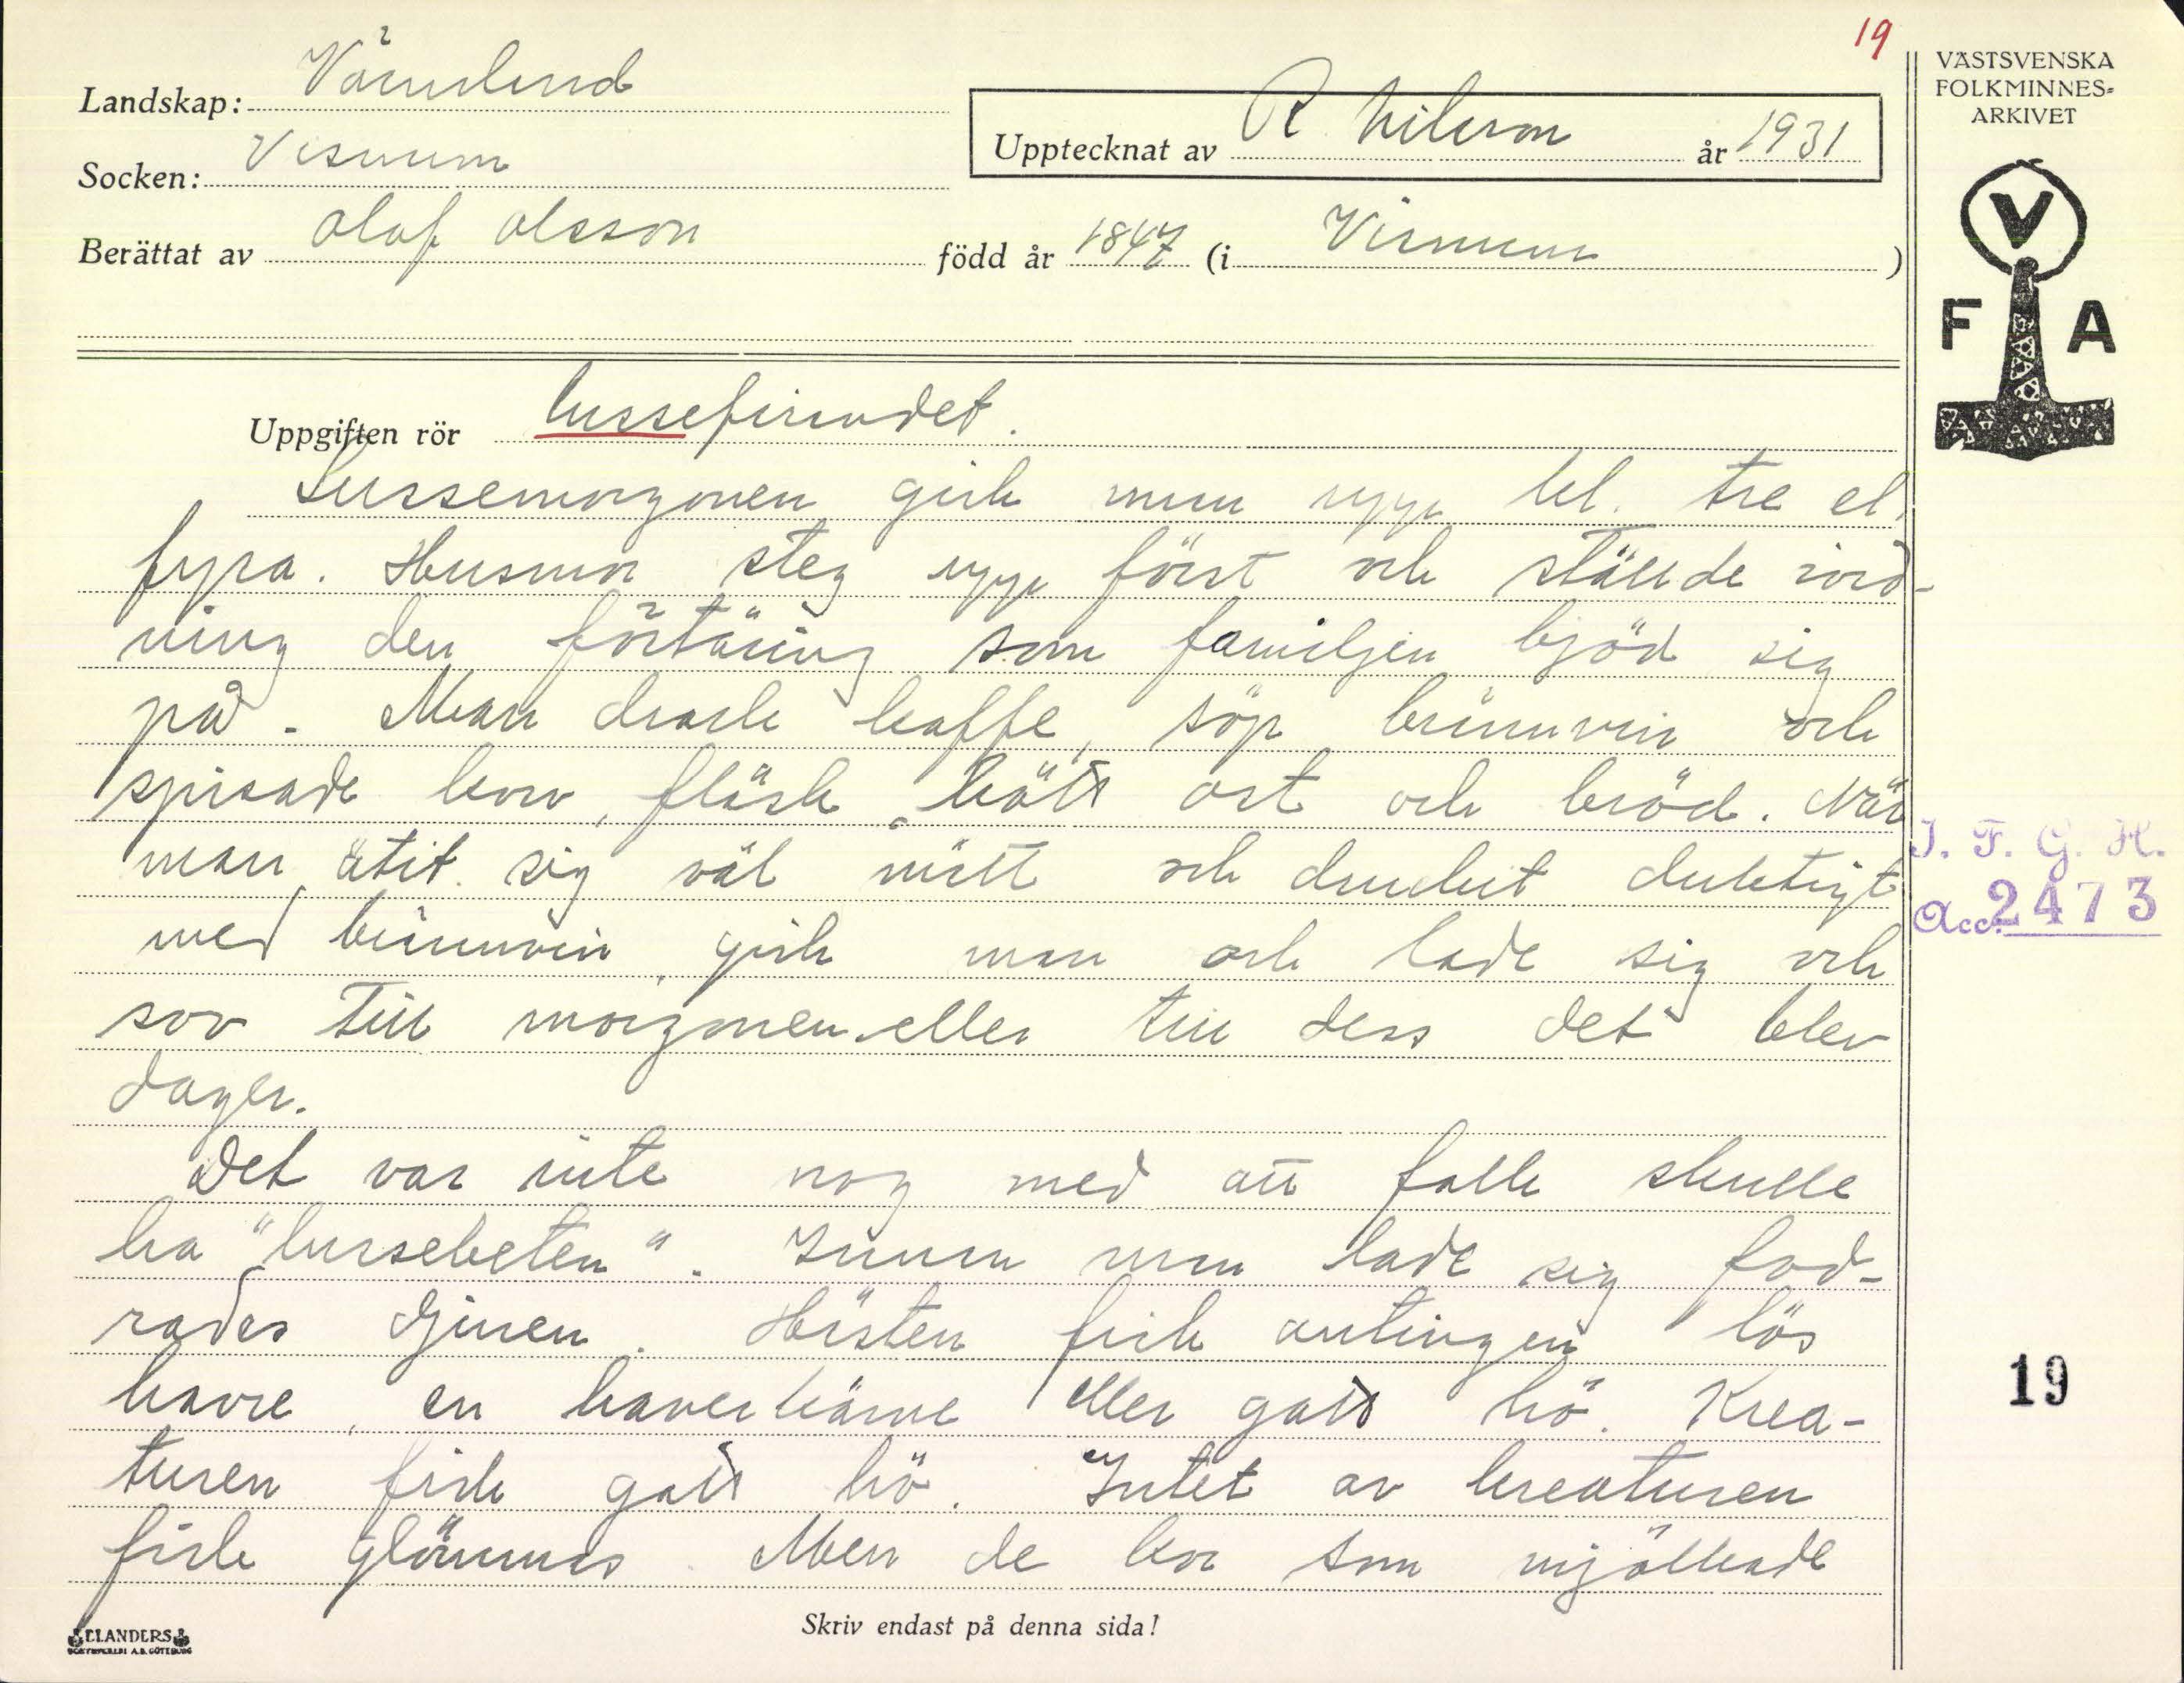 19
VÄSTSVENSKA
FOLKMINNES-
ARKIVET
Landskap: Värmland
Socken: Visnum
Upptecknat av R. Nilsson år 1931
Berättat av Olof Olsson född år 1847 (i Visnum)
V
F A
Uppgiften rör Lussefirandet.
Lussemorgonen gick man upp kl. tre el.
fyra. Husmor steg upp först och ställde iord-
ning den förtäring som familjen bjöd sig
på. Man drack kaffe, söp brännvin och
spisade korv, fläsk, kött ost och bröd. När
man ätit sig väl mätt och druckit duktigt
med brännvin, gick man och lade sig och
sov till morgonen eller till dess det blev
dager.
Det var inte nog med att folk skulle
ha "lussebeten". Innan man lade sig fod-
rades djuren. Hästen fick antingen lös
havre, en haverkärve eller gott hö. Krea-
turen fick gott hö. Intet av kreaturen
fick glömmas. Men de kor som mjölkade
J. F. G. H.
Acc. 2473
19
Skriv endast på denna sida!
ELANDERS
BOKTRYCKERI A.B. GÖTEBORG